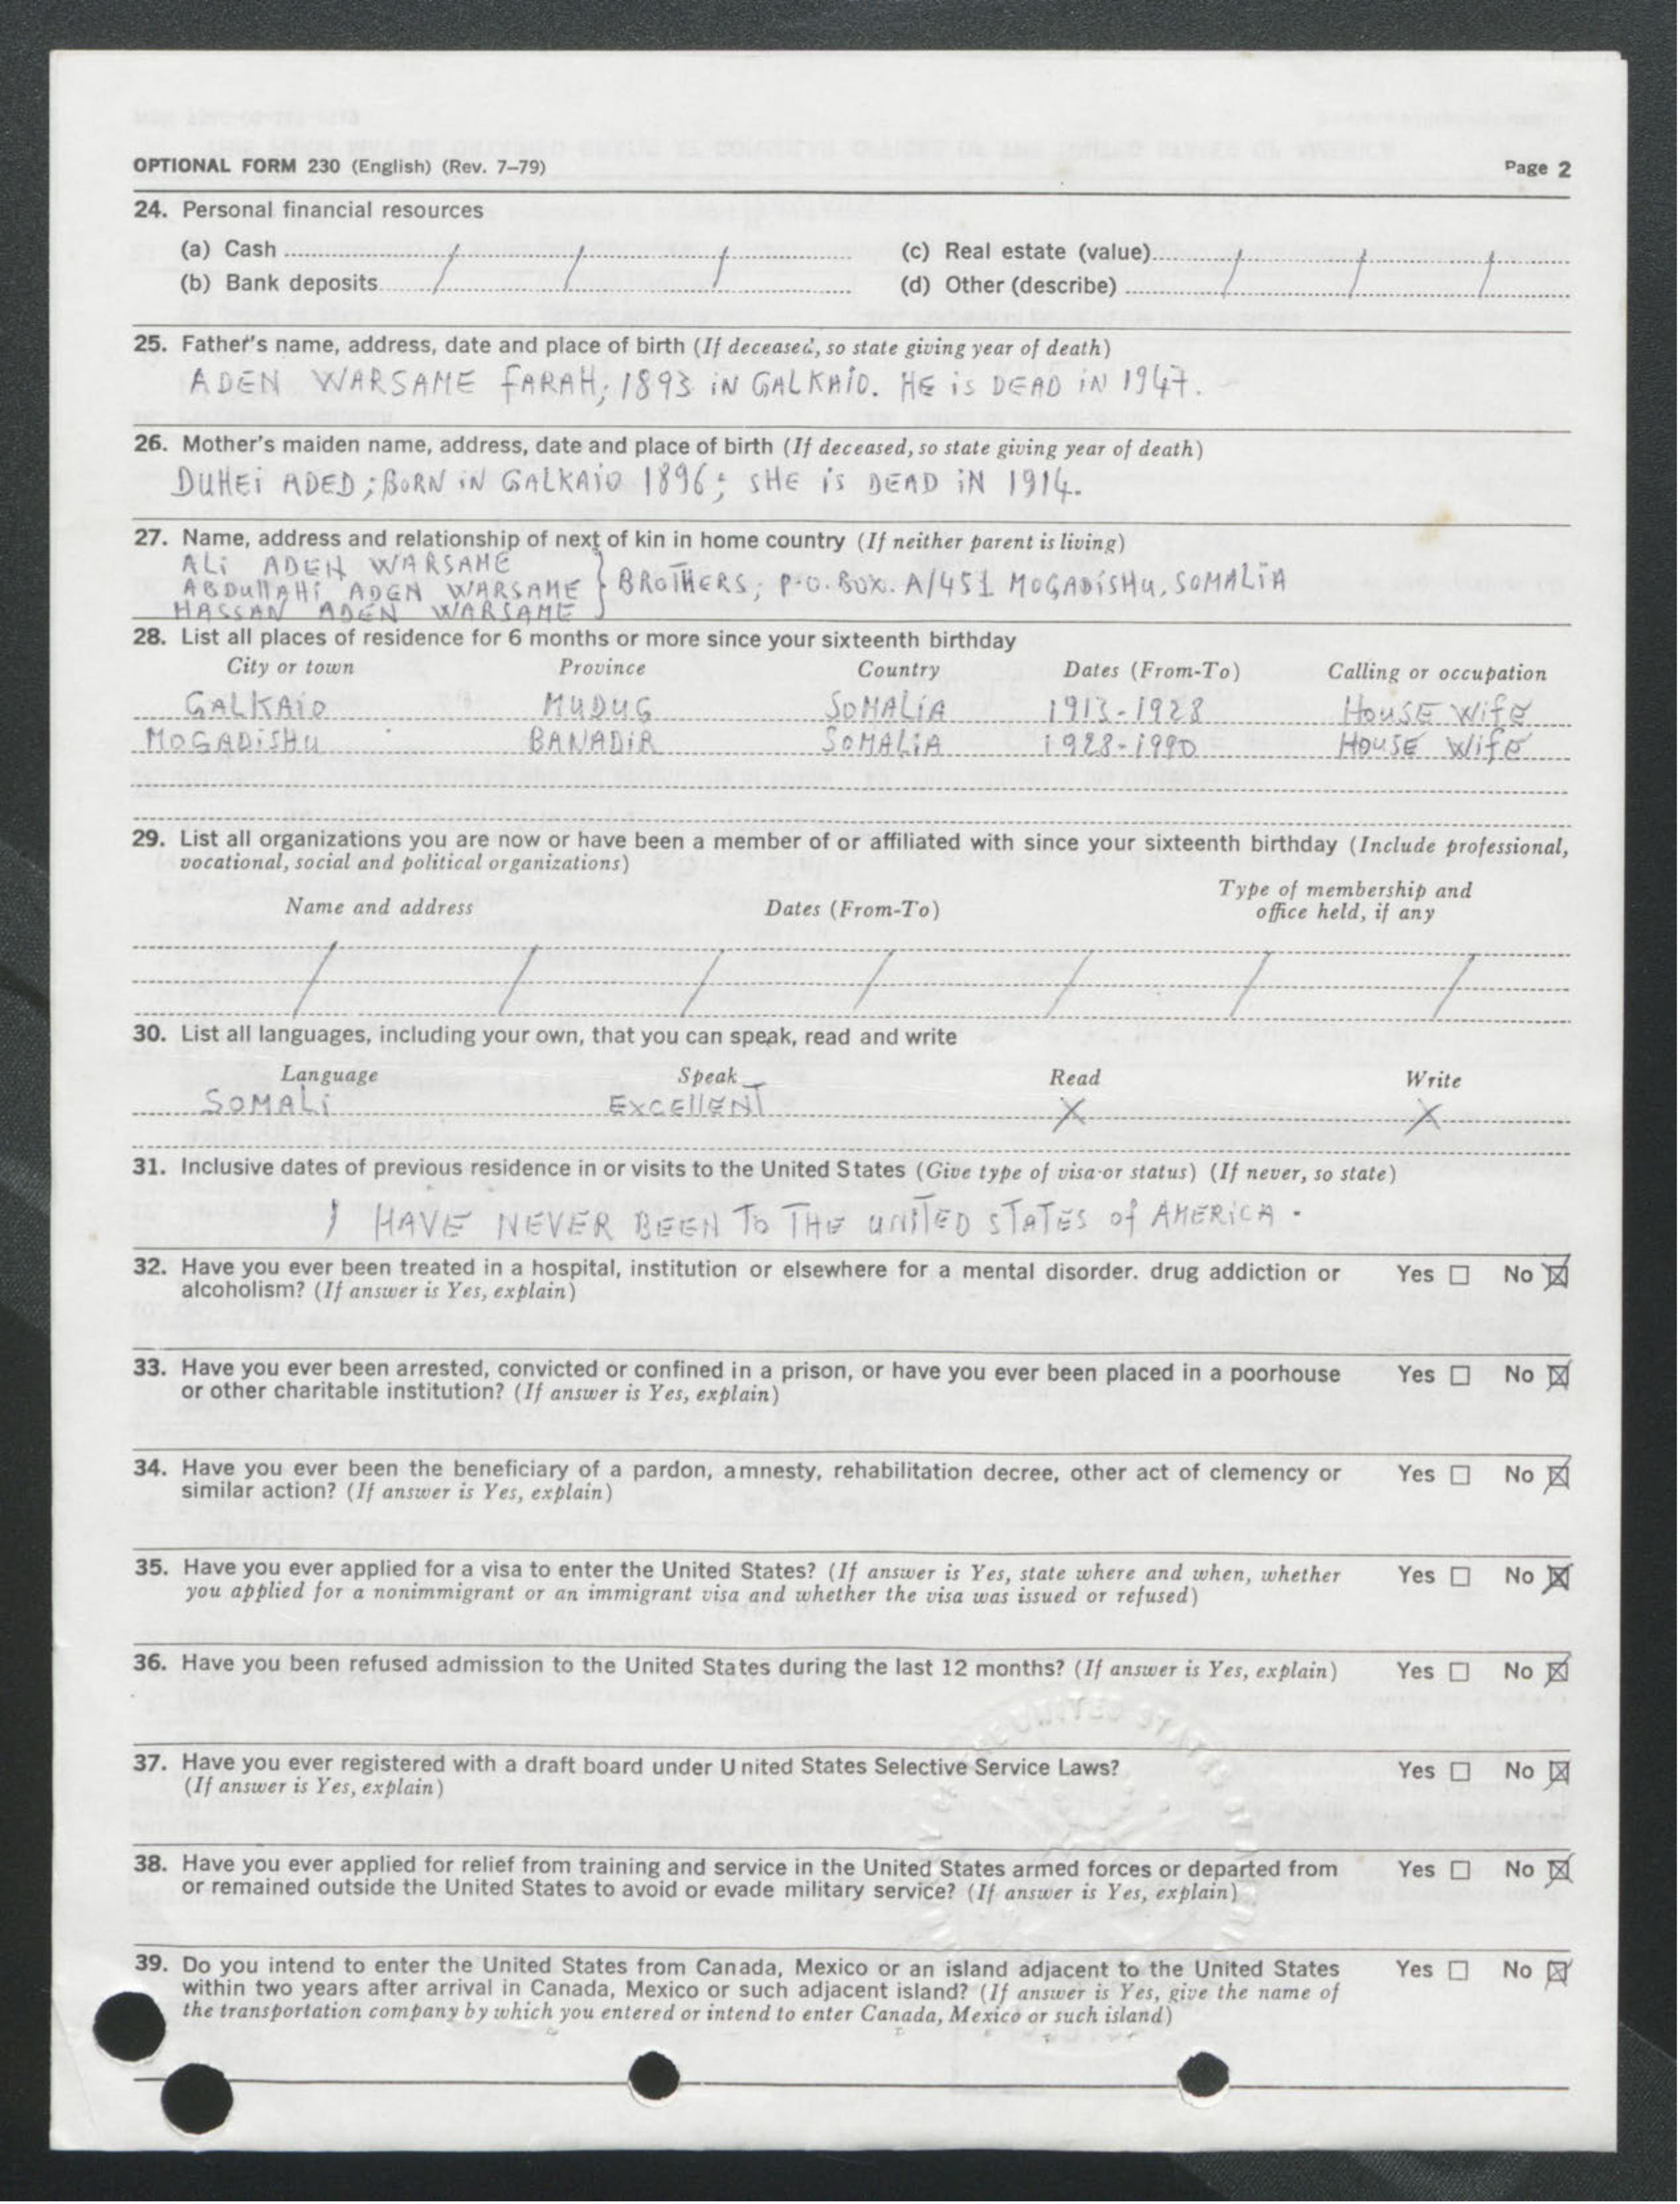 OPTIONAL FORM 230 (English) (Rev. 7–79) Page 2
24. Personal financial resources
(a) Cash / / / (c) Real estate (value) / / /
(b) Bank deposits / / / (d) Other (describe) / / /
25. Father's name, address, date and place of birth (If deceased, so state giving year of death)
ADEN WARSAME FARAH; 1893 iN GALKAIO. HE is DEAD iN 1947.
26. Mother's maiden name, address, date and place of birth (If deceased, so state giving year of death)
DUHEi ADED; BORN iN GALKAiO 1896; SHE is DEAD iN 1914.
27. Name, address and relationship of next of kin in home country (If neither parent is living)
ALi ADEN WARSAME
ABDullAHi ADEN WARSAME } BROTHERS; P.O. BOX. A/451 MOGADiSHU, SOMALiA
HASSAN ADEN WARSAME
28. List all places of residence for 6 months or more since your sixteenth birthday
City or town Province Country Dates (From-To) Calling or occupation
GALKAIO MUDUG SOMALIA 1913-1928 HOUSE Wife
MOGADiSHU BANADIR SOMALIA 1928-1990 HOUSE Wife
29. List all organizations you are now or have been a member of or affiliated with since your sixteenth birthday (Include professional,
vocational, social and political organizations)
Name and address Dates (From-To) Type of membership and
office held, if any
/ / / / / / /
30. List all languages, including your own, that you can speak, read and write
Language Speak Read Write
SOMALi EXCEllENT X X
31. Inclusive dates of previous residence in or visits to the United States (Give type of visa or status) (If never, so state)
I HAVE NEVER BEEN TO THE UNITED STATES of AMERICA.
32. Have you ever been treated in a hospital, institution or elsewhere for a mental disorder. drug addiction or Yes ☐ No ☒
alcoholism? (If answer is Yes, explain)
33. Have you ever been arrested, convicted or confined in a prison, or have you ever been placed in a poorhouse Yes ☐ No ☒
or other charitable institution? (If answer is Yes, explain)
34. Have you ever been the beneficiary of a pardon, amnesty, rehabilitation decree, other act of clemency or Yes ☐ No ☒
similar action? (If answer is Yes, explain)
35. Have you ever applied for a visa to enter the United States? (If answer is Yes, state where and when, whether Yes ☐ No ☒
you applied for a nonimmigrant or an immigrant visa and whether the visa was issued or refused)
36. Have you been refused admission to the United States during the last 12 months? (If answer is Yes, explain) Yes ☐ No ☒
37. Have you ever registered with a draft board under United States Selective Service Laws? Yes ☐ No ☒
(If answer is Yes, explain)
38. Have you ever applied for relief from training and service in the United States armed forces or departed from Yes ☐ No ☒
or remained outside the United States to avoid or evade military service? (If answer is Yes, explain)
39. Do you intend to enter the United States from Canada, Mexico or an island adjacent to the United States Yes ☐ No ☒
within two years after arrival in Canada, Mexico or such adjacent island? (If answer is Yes, give the name of
the transportation company by which you entered or intend to enter Canada, Mexico or such island)